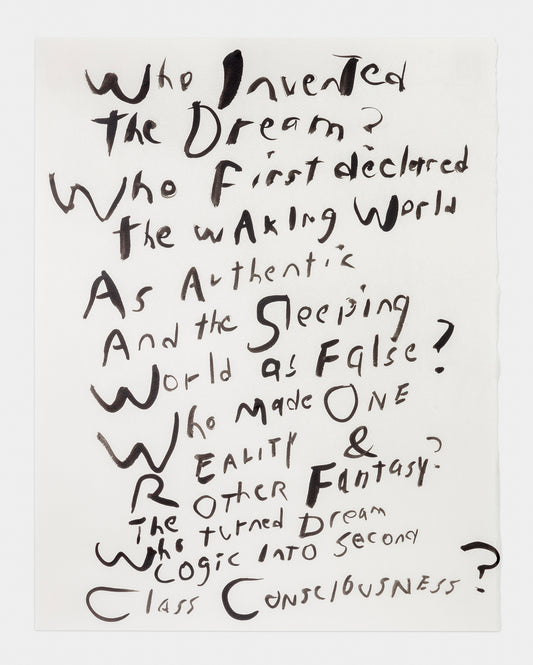 Who Invented
the Dream?
Who First declared
the wAking World
As Authentic
And the Sleeping
World as False?
Who made ONE
REALITY &
The OTHER Fantasy?
Who turned Dream
Logic INTO Second
Class CONSCIOUSNESS?